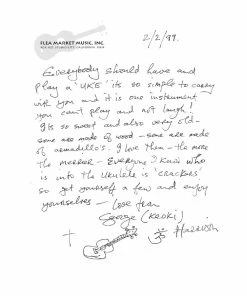 FLEA MARKET MUSIC, INC.
2/2/99.
Everybody should have and
play a 'UKE' its so simple to carry
with you and it is one instrument
you can't play and not laugh!
Its so sweet and also very old-
some are made of wood - some are made
of armadillo's. I love them - the more
the merrier - Everyone I know who
is into the ukulele is 'crackers'
so get yourself a few and enjoy
yourselves - Love from
George (Keoki)
Harrison
ॐ